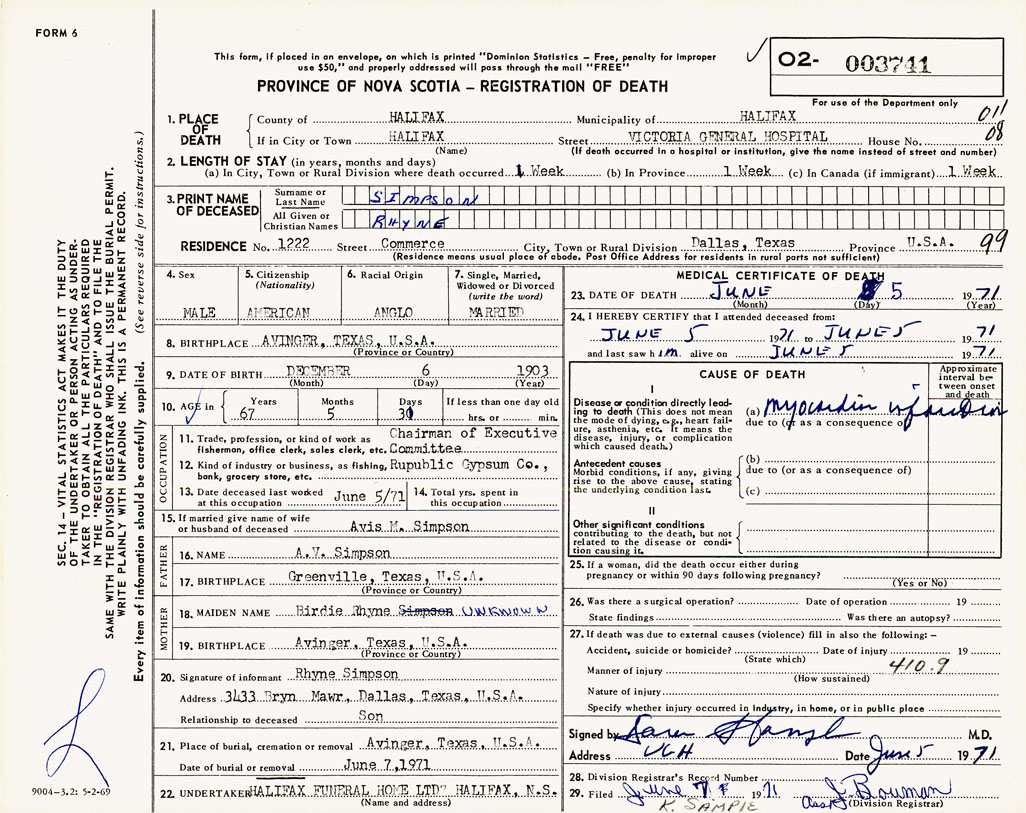 FORM 6
This form, if placed in an envelope, on which is printed "Dominion Statistics – Free, penalty for Improper
use $50," and properly addressed will pass through the mail "FREE"
PROVINCE OF NOVA SCOTIA – REGISTRATION OF DEATH
O2- 003741
For use of the Department only
SEC. 14 – VITAL STATISTICS ACT MAKES IT THE DUTY
OF THE UNDERTAKER OR PERSON ACTING AS UNDER-
TAKER TO OBTAIN ALL THE PARTICULARS REQUIRED
IN THE "REGISTRATION OF DEATH" AND TO FILE THE
SAME WITH THE DIVISION REGISTRAR WHO SHALL ISSUE THE BURIAL PERMIT.
WRITE PLAINLY WITH UNFADING INK. THIS IS A PERMANENT RECORD.
Every item of Information should be carefully supplied. (See reverse side for instructions.)
1. PLACE OF DEATH County of HALIFAX Municipality of HALIFAX 011
If in City or Town HALIFAX Street VICTORIA GENERAL HOSPITAL House No. 08
(Name) (If death occurred in a hospital or institution, give the name instead of street and number)
2. LENGTH OF STAY (in years, months and days)
(a) In City, Town or Rural Division where death occurred 1 Week (b) In Province 1 Week (c) In Canada (if immigrant) 1 Week
3. PRINT NAME OF DECEASED Surname or Last Name SIMPSON
All Given or Christian Names RHYNE
RESIDENCE No. 1222 Street Commerce City, Town or Rural Division Dallas, Texas Province U.S.A. 99
(Residence means usual place of abode. Post Office Address for residents in rural parts not sufficient)
4. Sex MALE
5. Citizenship (Nationality) AMERICAN
6. Racial Origin ANGLO
7. Single, Married, Widowed or Divorced (write the word) MARRIED
8. BIRTHPLACE AVINGER, TEXAS, U.S.A.
(Province or Country)
9. DATE OF BIRTH DECEMBER 6 1903
(Month) (Day) (Year)
10. AGE in Years 67 Months 5 Days 30 If less than one day old hrs. or min.
OCCUPATION
11. Trade, profession, or kind of work as Chairman of Executive
fisherman, office clerk, sales clerk, etc. Committee
12. Kind of industry or business, as fishing, Rupublic Gypsum Co.,
bank, grocery store, etc.
13. Date deceased last worked at this occupation June 5/71 14. Total yrs. spent in this occupation
15. If married give name of wife
or husband of deceased Avis M. Simpson
FATHER
16. NAME A.V. Simpson
17. BIRTHPLACE Greenville, Texas, U.S.A.
(Province or Country)
MOTHER
18. MAIDEN NAME Birdie Rhyne Simpson UNKNOWN
19. BIRTHPLACE Avinger, Texas, U.S.A.
(Province or Country)
20. Signature of informant Rhyne Simpson
Address 3433 Bryn Mawr, Dallas, Texas, U.S.A.
Relationship to deceased Son
21. Place of burial, cremation or removal Avinger, Texas, U.S.A.
Date of burial or removal June 7,1971
22. UNDERTAKER HALIFAX FUNERAL HOME LTD' HALIFAX, N.S.
(Name and address)
9004-3.2: 5-2-69
MEDICAL CERTIFICATE OF DEATH
23. DATE OF DEATH JUNE 5 1971
(Month) (Day) (Year)
24. I HEREBY CERTIFY that I attended deceased from:
JUNE 5 1971 to JUNE 5 1971
and last saw him alive on JUNE 5 1971
CAUSE OF DEATH
Approximate interval between onset and death
I
Disease or condition directly lead-
ing to death (This does not mean
the mode of dying, e.g., heart fail-
ure, asthenia, etc. It means the
disease, injury, or complication
which caused death.)
(a) myocardin infarction
due to (or as a consequence of
Antecedent causes
Morbid conditions, if any, giving
rise to the above cause, stating
the underlying condition last.
(b)
due to (or as a consequence of)
(c)
II
Other significant conditions
contributing to the death, but not
related to the disease or condi-
tion causing it.
25. If a woman, did the death occur either during
pregnancy or within 90 days following pregnancy?
(Yes or No)
26. Was there a surgical operation? Date of operation 19
State findings Was there an autopsy?
27. If death was due to external causes (violence) fill in also the following: –
Accident, suicide or homicide? Date of injury 19
(State which)
Manner of injury 410.9
(How sustained)
Nature of injury
Specify whether injury occurred in industry, in home, or in public place
Signed by M.D.
Address VGH Date June 5 1971
28. Division Registrar's Record Number
29. Filed June 7 1971 J. Bowman
K. SAMPLE Asst (Division Registrar)